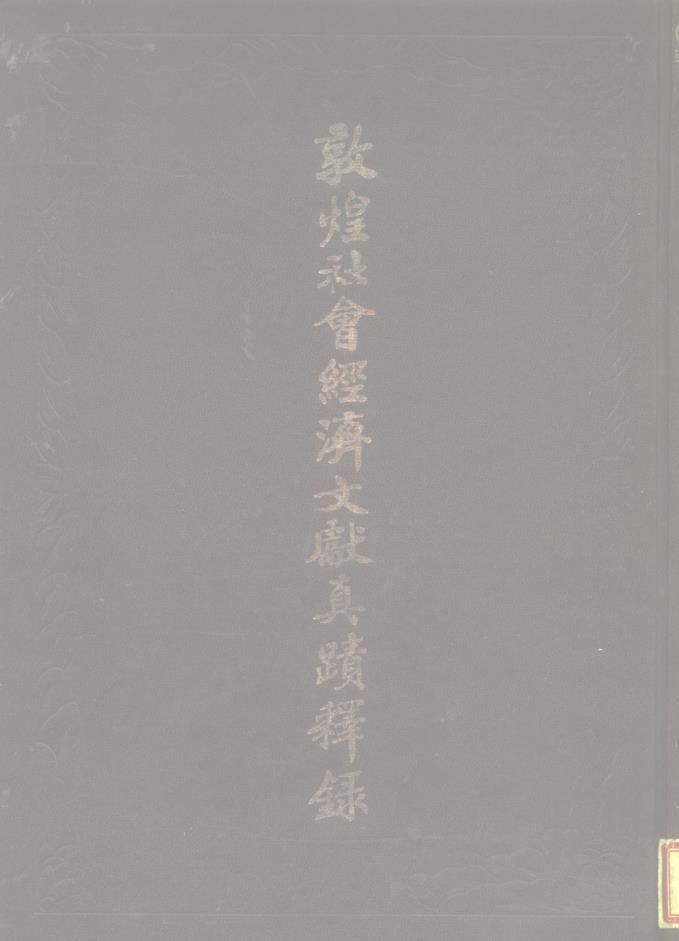 敦煌社會經濟文獻真蹟釋録